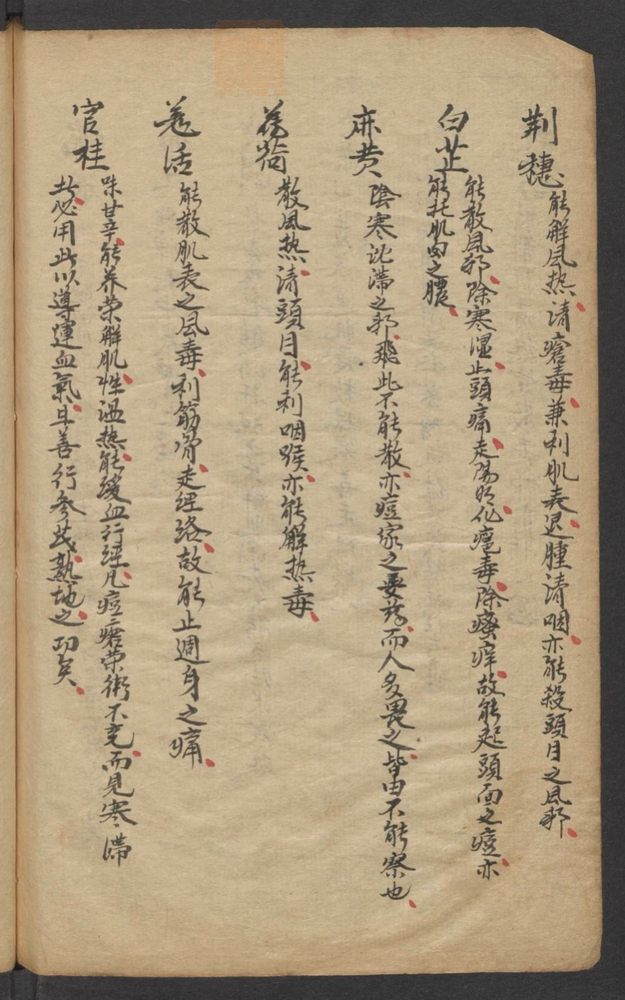 荆穗 能解風热清瘡毒兼利肌表退腫清咽亦能殺頭目之風邪
白芷 能散風邪除寒湿止頭痛走陽明化瘡毒除瘙痒故能起頭面之痘亦
能托肌肉之膿
麻黄 陰寒沈滞之邪飛此不能散亦痘家之要药而人多畏之皆由不能察也
薄荷 散風热清頭目能利咽喉亦能解热毒
羗活 能散肌表之風毒利筋骨走经络故能止週身之痛
官桂 味甘辛能养荣解肌性温热能缓血行经凡痘瘡荣衛不充而見寒滞
者必用此以導達血氣且善行参茋熟地之功矣